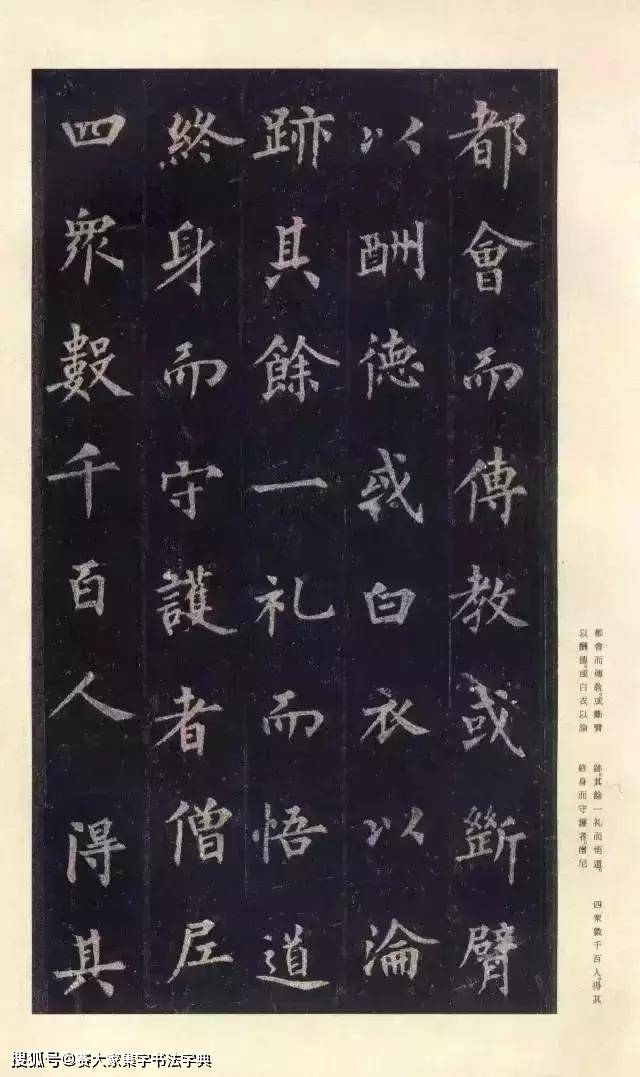 都會而傳教或斷臂
以酬德或白衣以淪
跡其餘一礼而悟道
終身而守護者僧尼
四眾數千百人得其
都會而傳教。或斷臂
以酬德。或白衣以淪
跡。其餘一礼而悟道。
終身而守護者。僧尼
四眾數千百人。得其
搜狐号@赛大家集字书法字典